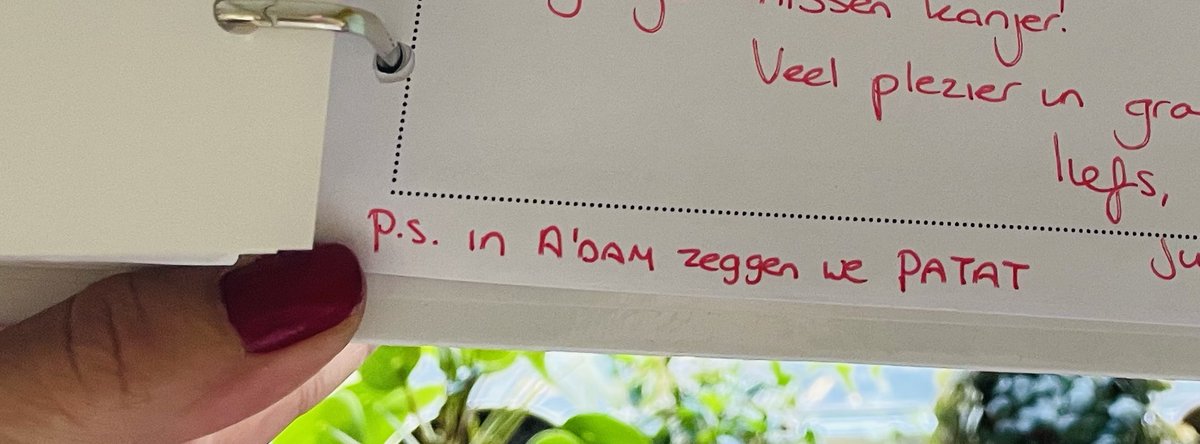 missen kanjer!
Veel plezier in
liefs,
P.S. in A'DAM zeggen we PATAT